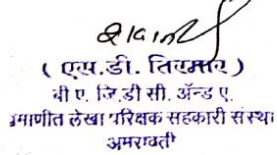 ( एस.डी. तिरमारे )
बी ए. जि.डी सी. ॲन्ड ए.
प्रमाणीत लेखा परिक्षक सहकारी संस्था
अमरावती